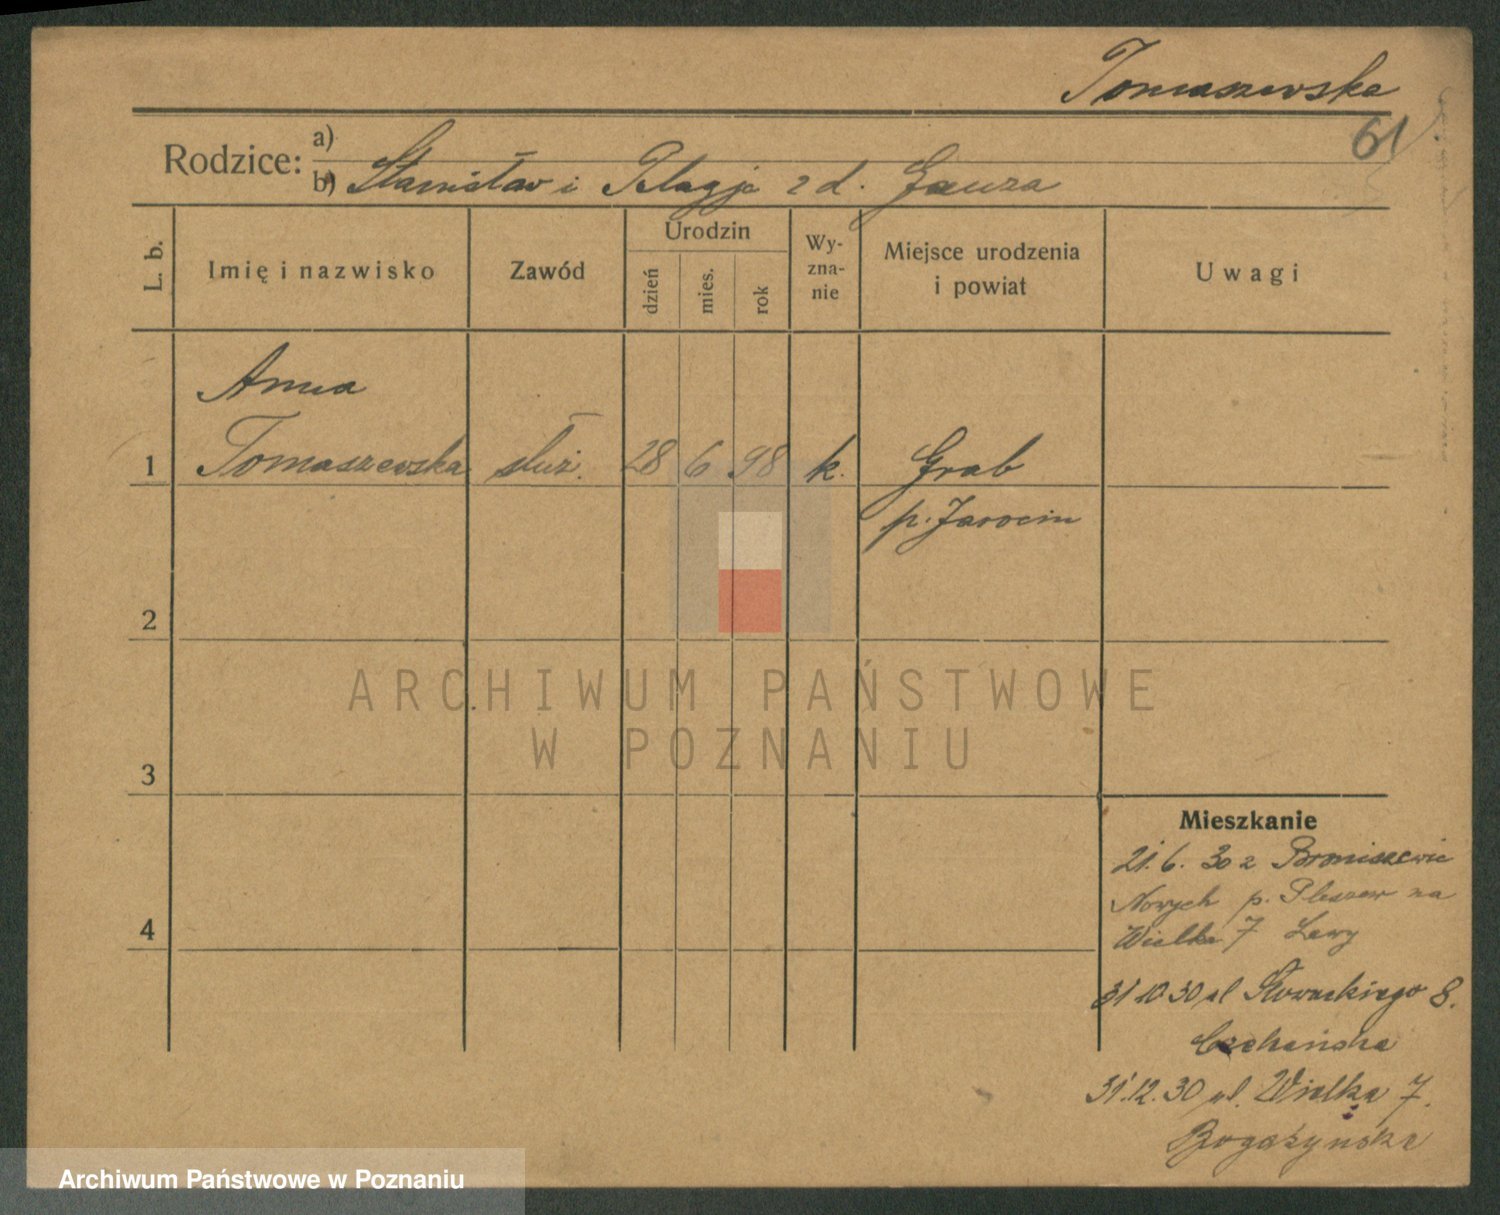 Tomaszewska
61
Rodzice: a)
b) Stanisław i Pelagja z d. Gauza
L. b.
Imię i nazwisko
Zawód
Urodzin
dzień
mies.
rok
Wy-
zna-
nie
Miejsce urodzenia
i powiat
Uwagi
Anna
1 Tomaszewska służ. 28 6 98 k. Grab
p. Jarocin
2
3
4
Mieszkanie
21. 6. 30 z Broniszewic
Nowych p. Pleszew na
Wielka 7 Lewy
31 10 30 ul Słowackiego 8.
31.12.30 ul. Wielka 7.
ARCHIWUM PAŃSTWOWE
W POZNANIU
Archiwum Państwowe w Poznaniu